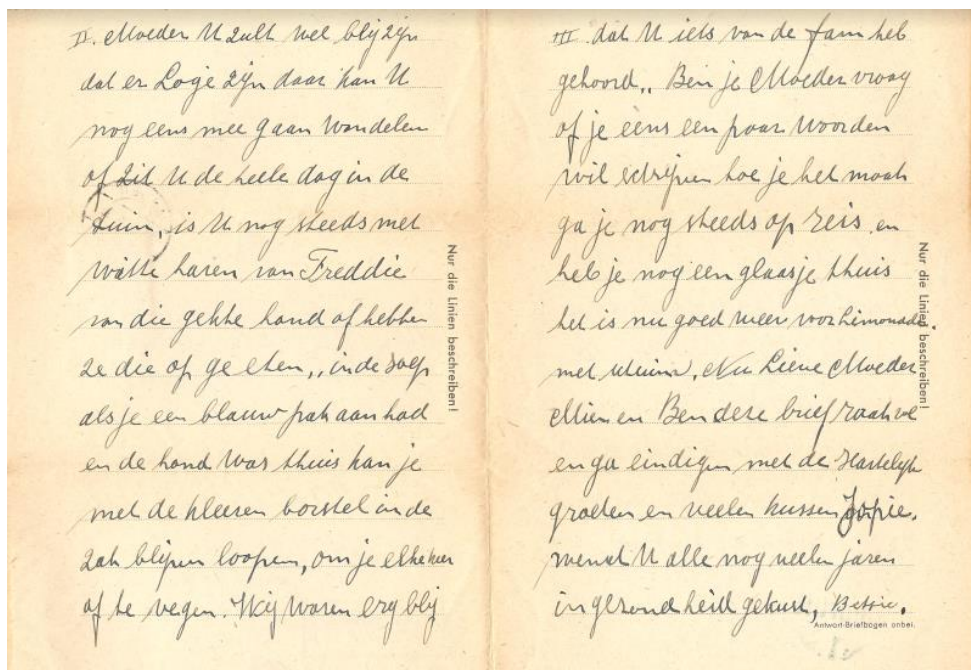 II. Moeder U zult wel blij zijn
dat er Logé zijn daar kan U
nog eens mee gaan wandelen
of zit U de heele dag in de
tuin, is U nog steeds met
witte haren van Freddie
van die gekke hond of hebben
ze die op ge eten,, in de soep
als je een blauw pak aan had
en de hond was thuis kan je
met de kleeren borstel in de
zak blijven loopen, om je elke keer
af te vegen. Wij waren erg blij
Nur die Linien beschreiben!
III. dat U iets van de fam heb
gehoord,, Ben je Moeder vraag
of je eens een paar woorden
wil schrijven hoe je het maak
ga je nog steeds op reis. en
heb je nog een glaasje thuis
het is nu goed weer voor Limonade.
met schuim. Nu Lieve Moeder
Mien en Ben deze brief raak vol
en ga eindigen met de Hartelijk
groeten en veelen kussen Jopie.
wenst U alle nog veelen jaren
in gezondheid gekust, Betsie.
Nur die Linien beschreiben!
Antwort-Briefbogen anbei.